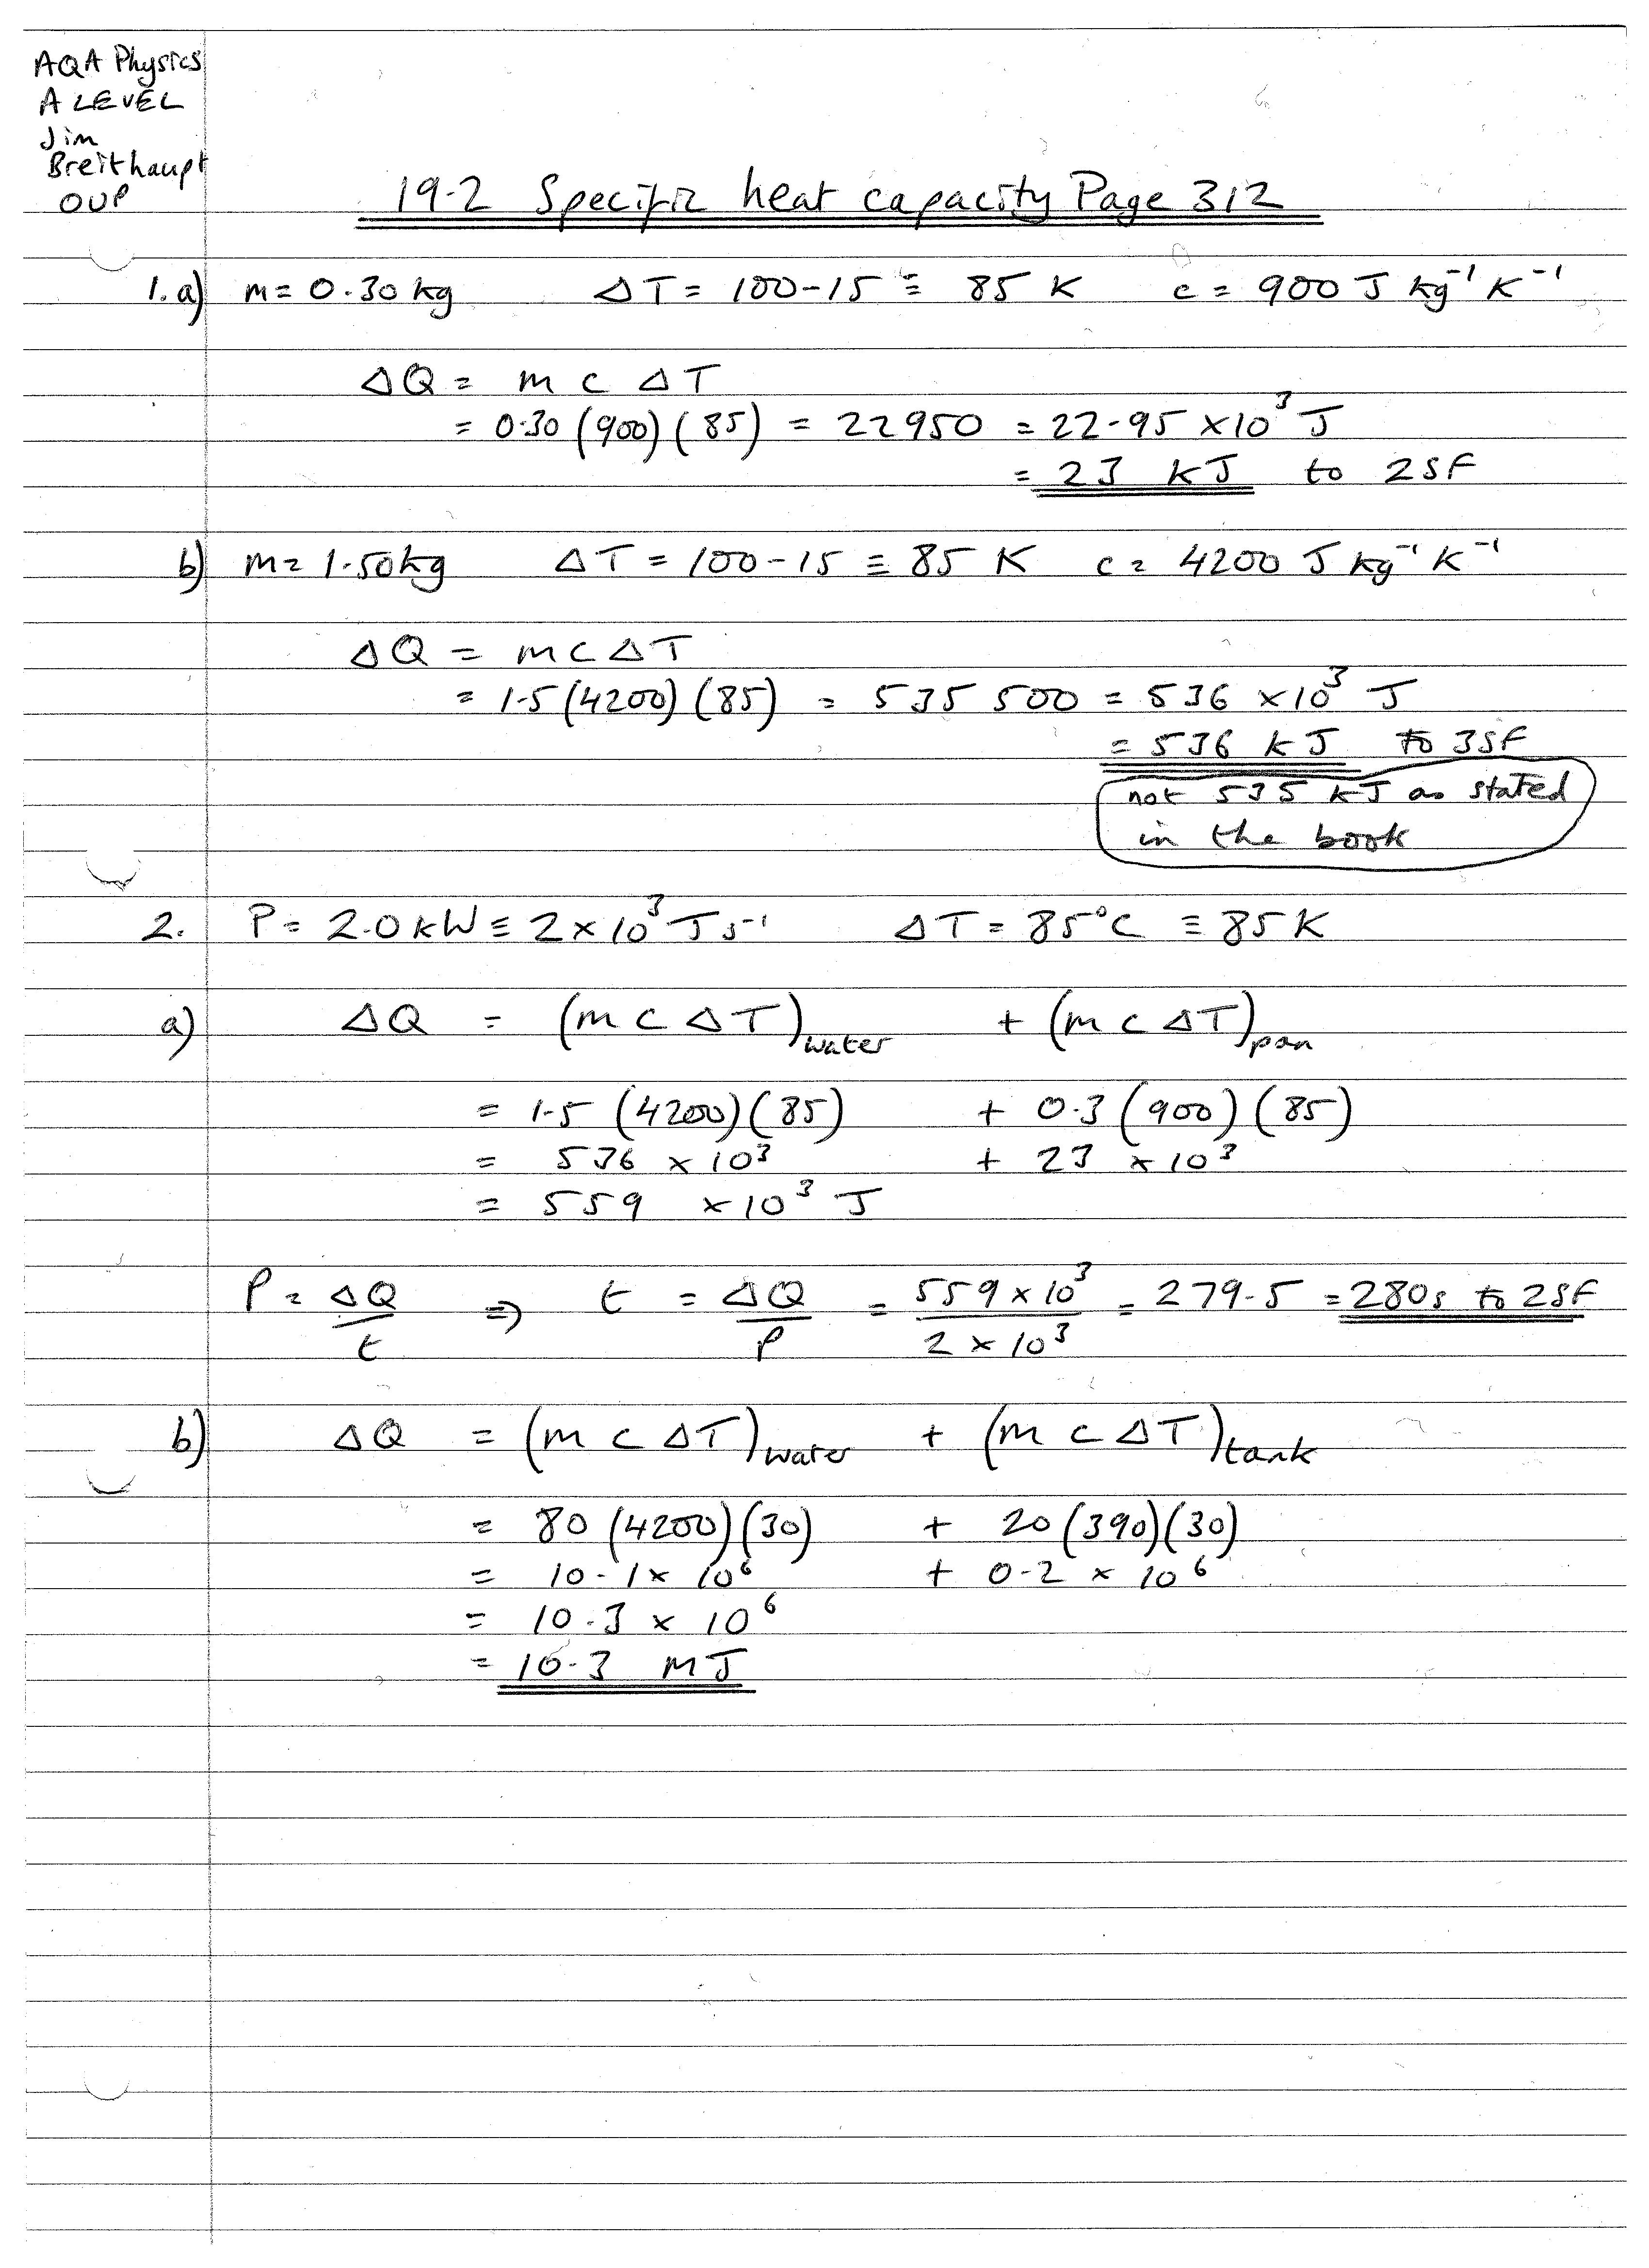 AQA Physics
A LEVEL
Jim
Breithaupt
OUP
19.2 Specific heat capacity Page 312
1. a) m = 0.30 kg ΔT = 100-15 ≡ 85 K c = 900 J kg⁻¹ K⁻¹
ΔQ = m c ΔT
= 0.30 (900) (85) = 22950 = 22.95 × 10³ J
= 23 kJ to 2SF
b) m = 1.50 kg ΔT = 100-15 ≡ 85 K c = 4200 J kg⁻¹ K⁻¹
ΔQ = m c ΔT
= 1.5 (4200) (85) = 535 500 = 536 × 10³ J
= 536 kJ to 3SF
not 535 kJ as stated
in the book
2. P = 2.0 kW ≡ 2 × 10³ J s⁻¹ ΔT = 85°C ≡ 85 K
a) ΔQ = (m c ΔT)water + (m c ΔT)pan
= 1.5 (4200) (85) + 0.3 (900) (85)
= 536 × 10³ + 23 × 10³
= 559 × 10³ J
P = ΔQ/t ⇒ t = ΔQ/P = 559 × 10³/2 × 10³ = 279.5 = 280s to 2SF
b) ΔQ = (m c ΔT)water + (m c ΔT)tank
= 80 (4200) (30) + 20 (390) (30)
= 10.1 × 10⁶ + 0.2 × 10⁶
= 10.3 × 10⁶
= 10.3 MJ